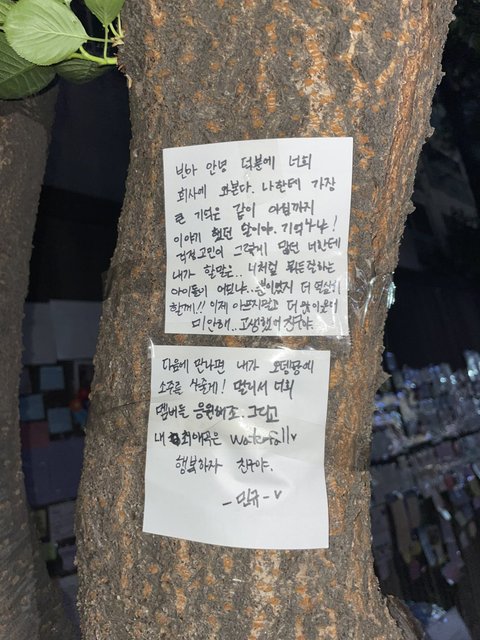 빈아 안녕 덕분에 너희
회사에 와본다. 나한테 가장
큰 기억은 같이 아침까지
이야기 했던 날이야. 기억나냐!
걱정고민이 그렇게 많던 너한테
내가 할말은.. 너처럼 뭐든 잘하는
아이들이 어딨냐..
함께!! 이제 아프지말고 더
미안해.. 고생했어 친구야.
다음에 만나면 내가 오뎅탕에
소주를 사줄게! 멀리서 너희
멤버들 응원해조. 그리고
내 최애곡은 waterfall♥
행복하자 친구야.
- 민규 - ♥